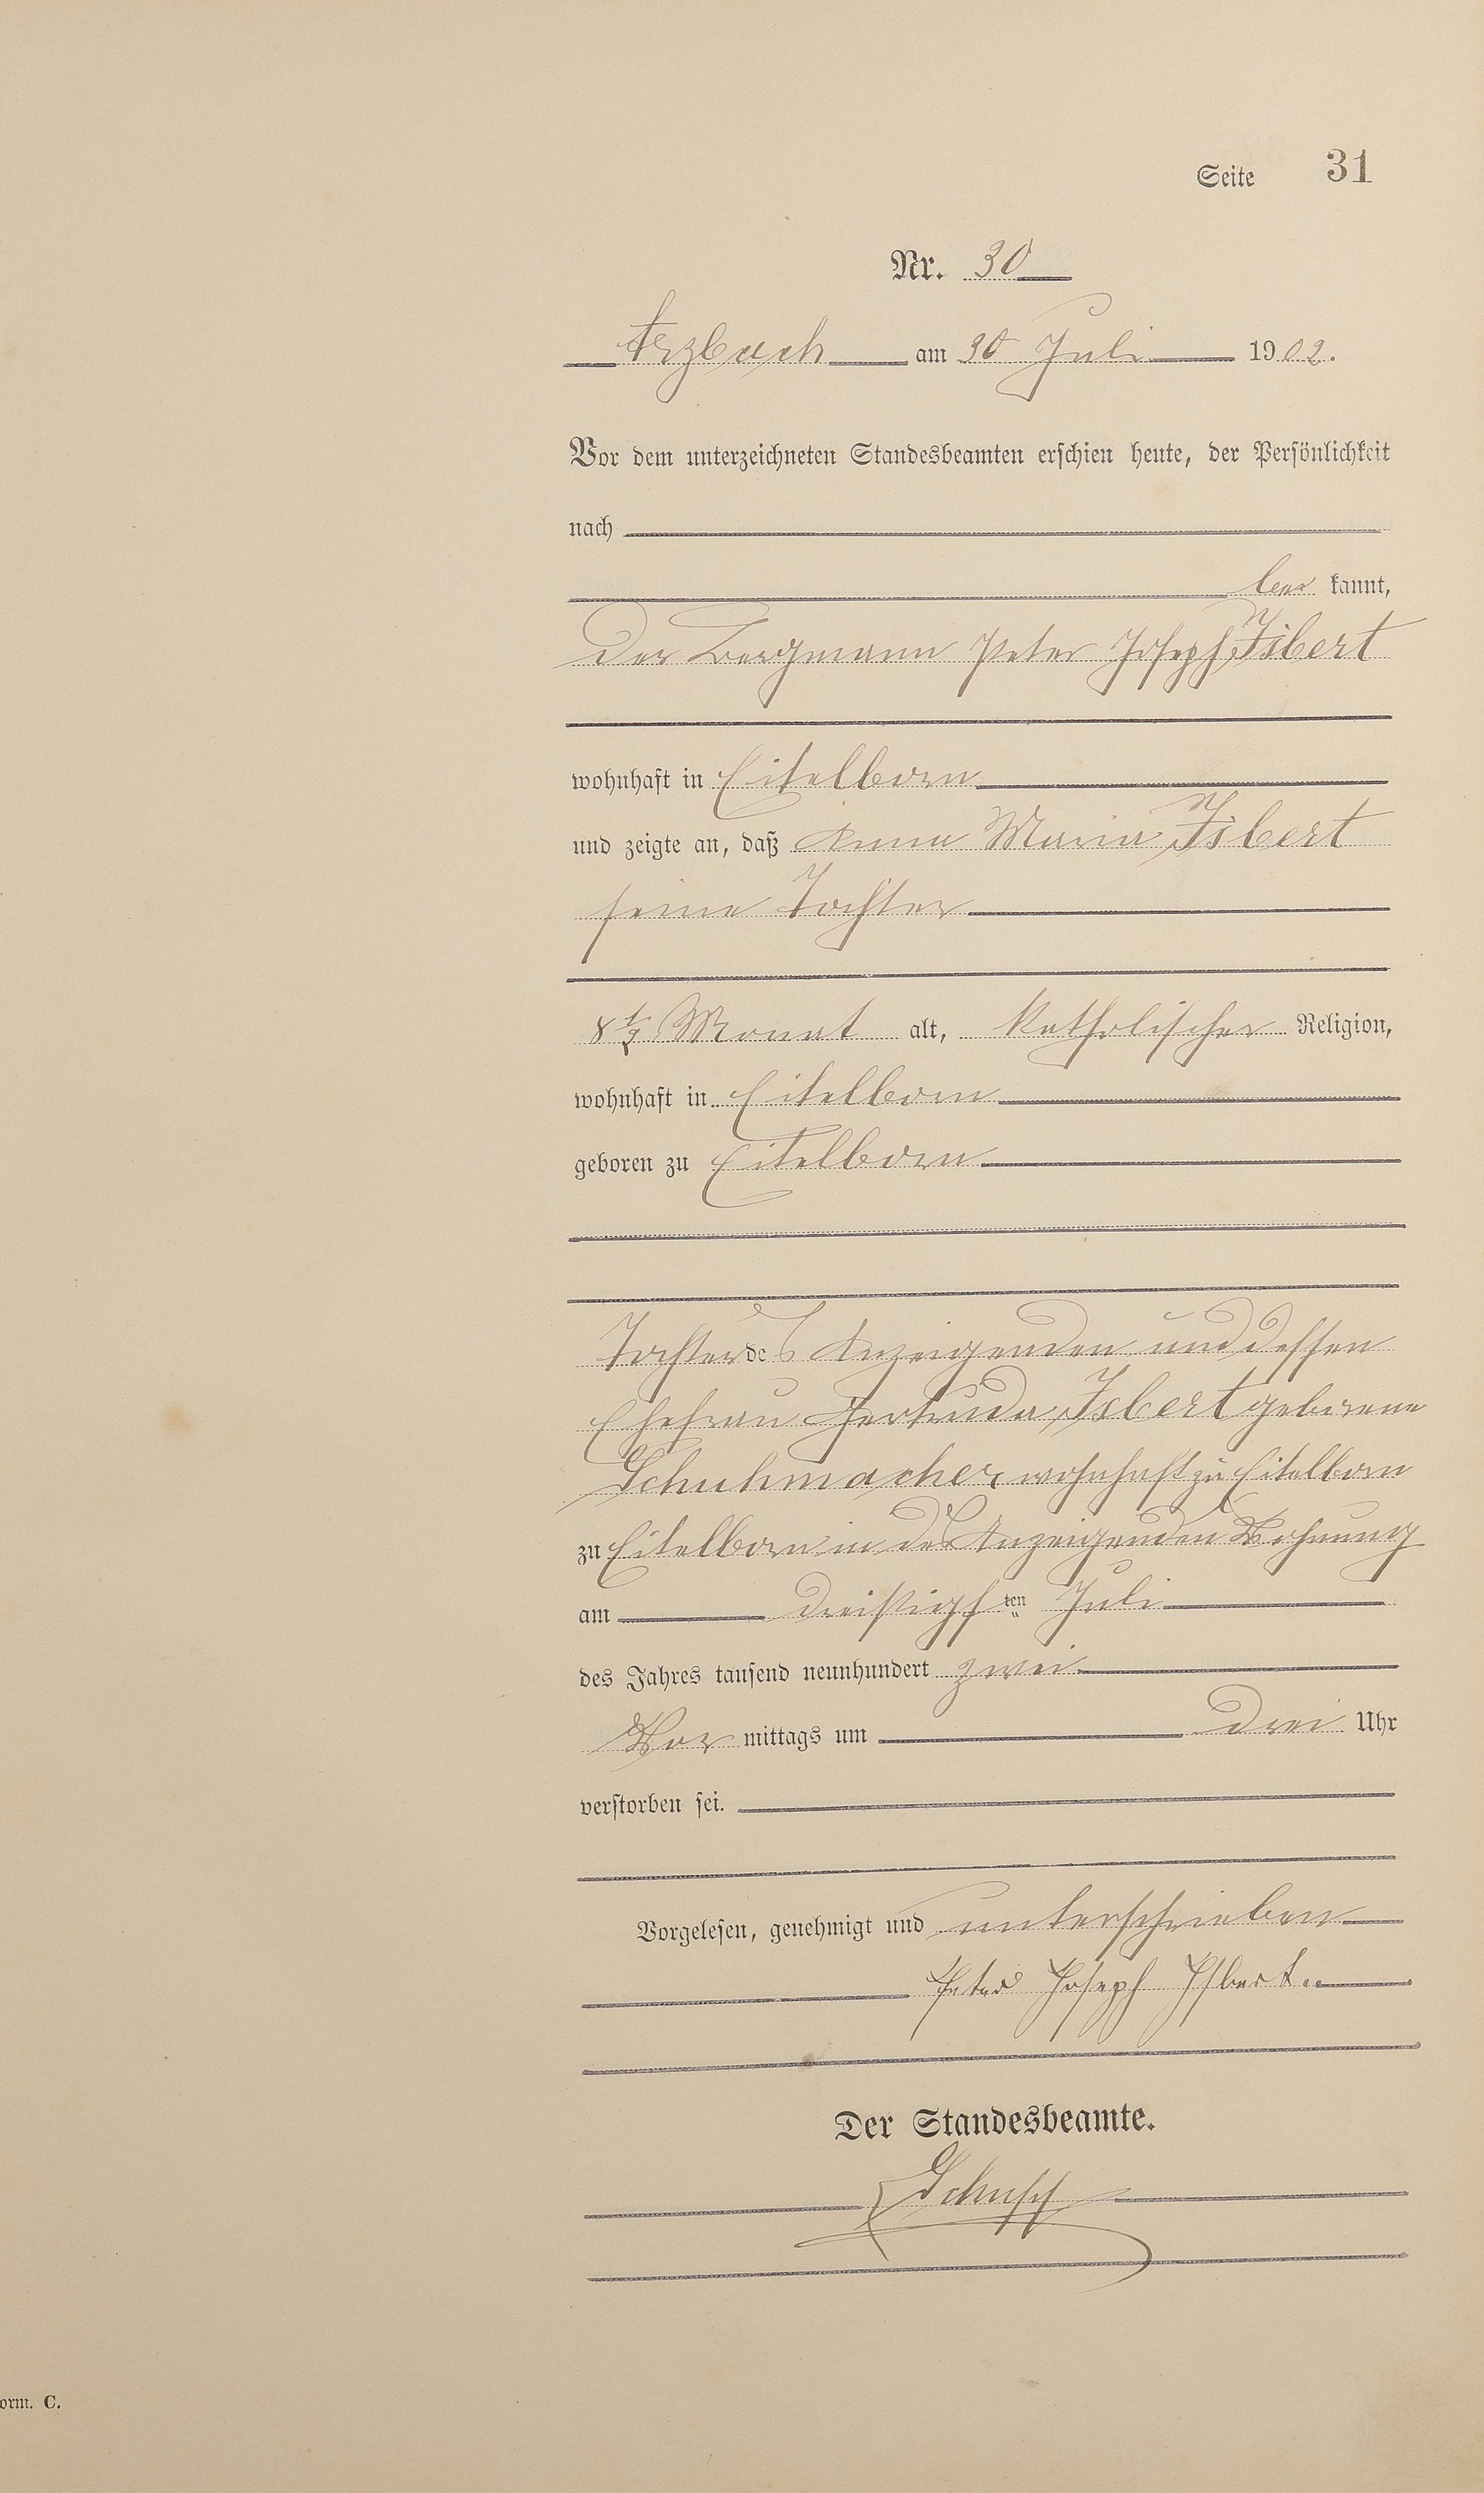 Seite 31
Nr. 30
Arzbach am 30 Juli 1902.
Vor dem unterzeichneten Standesbeamten erschien heute, der Persönlichkeit
nach
be kannt,
der Bergmann Peter Joseph Isbert
wohnhaft in Eitelborn
und zeigte an, daß Anna Maria Isbert
seine Tochter
8 1/2 Monat alt, katholischer Religion,
wohnhaft in Eitelborn
geboren zu Eitelborn
Tochter des Anzeigenden und dessen
Ehefrau Gertruda Isbert geborene
Schuhmacher, wohnhaft zu Eitelborn
zu Eitelborn in des Anzeigenden Wohnung
am dreißigsten Juli
des Jahres tausend neunhundert zwei
Vor mittags um drei Uhr
verstorben sei.
Vorgelesen, genehmigt und unterschrieben
Peter Joseph Isbert
Der Standesbeamte.
orm. C.